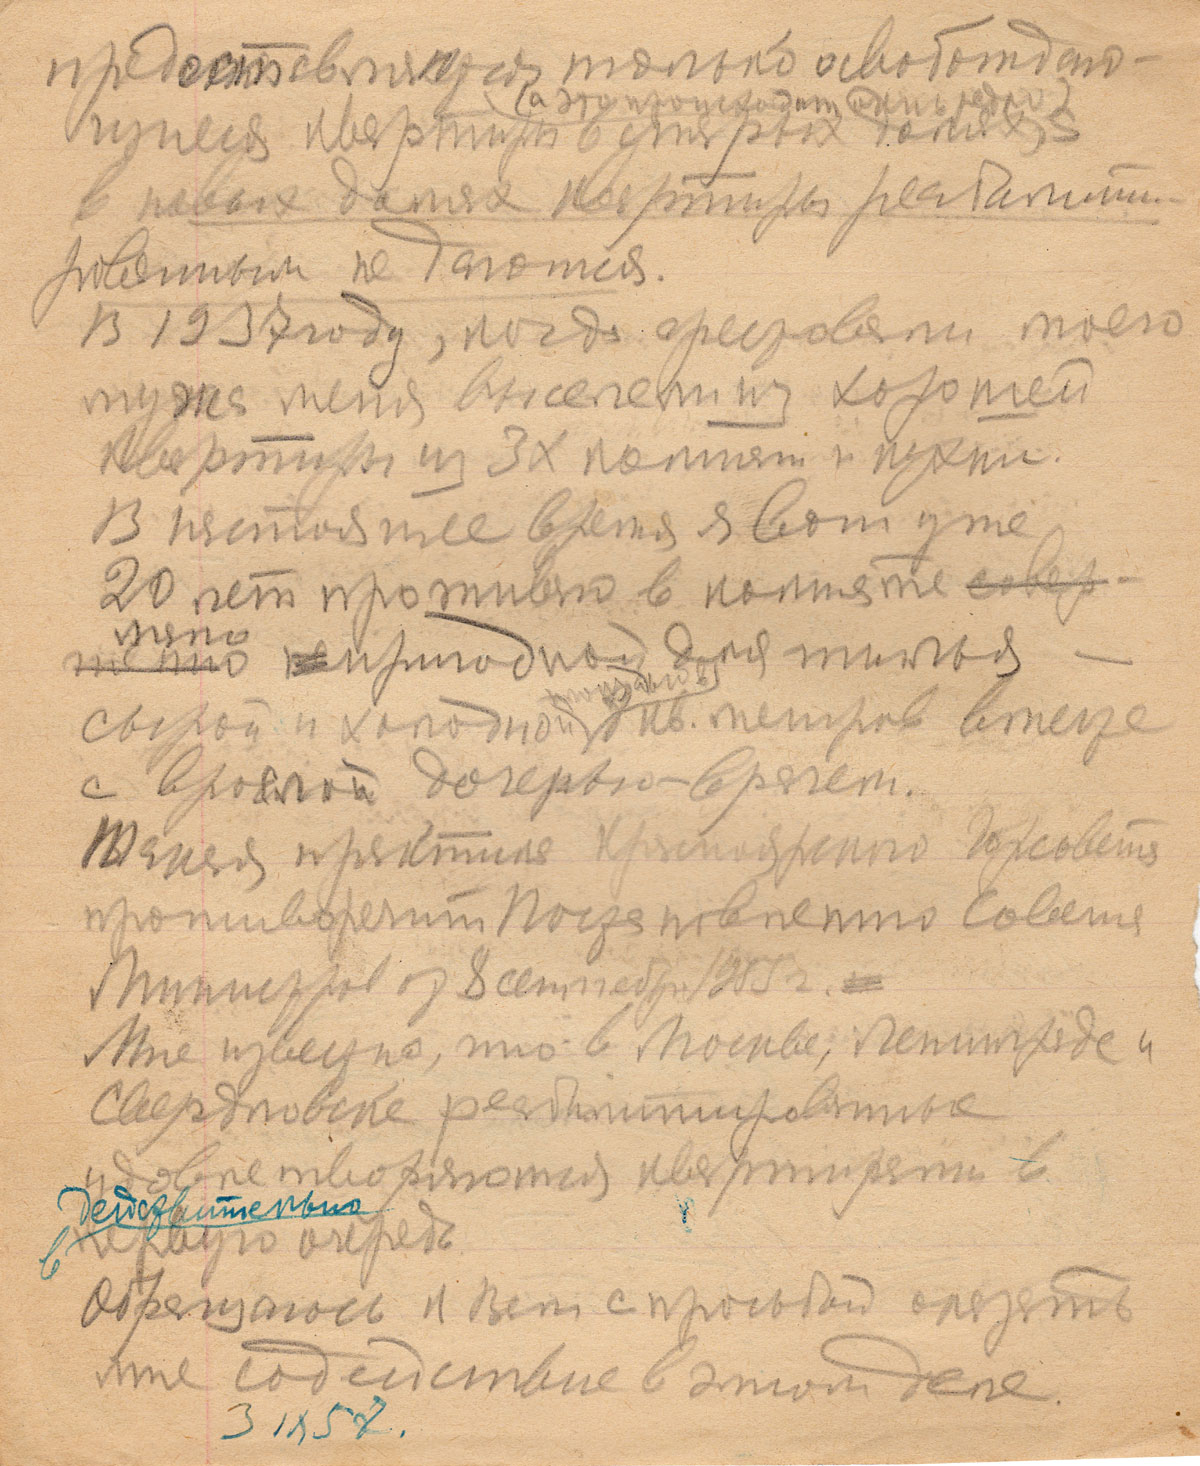 предоставляются только освобождаю-
(а это происходит очень редко)
щиеся квартиры в старых домах, а
в новых домах квартиры реабилити-
рованным не даются.
В 1937 году, когда арестовали моего
мужа меня выселили из хорошей
квартиры из 3х комнат и кухни.
В настоящее время я вот уже
20 лет проживаю в комнате совер-
мало
шенно не пригодной для жилья —
сырой и холодной кв. метров вместе
с взрослой дочерью-врачем.
Такая практика Красноярского Горсовета
противоречит Постановлению Совета
Министров от 8 сентября 1955 г.
Мне известно, что в Москве, Ленинграде и
Свердловске реабилитированные
удовлетворяются квартирами в
действительно
в первую очередь
Обращаюсь к Вам с просьбой оказать
мне содействие в этом деле.
3 IX 57.